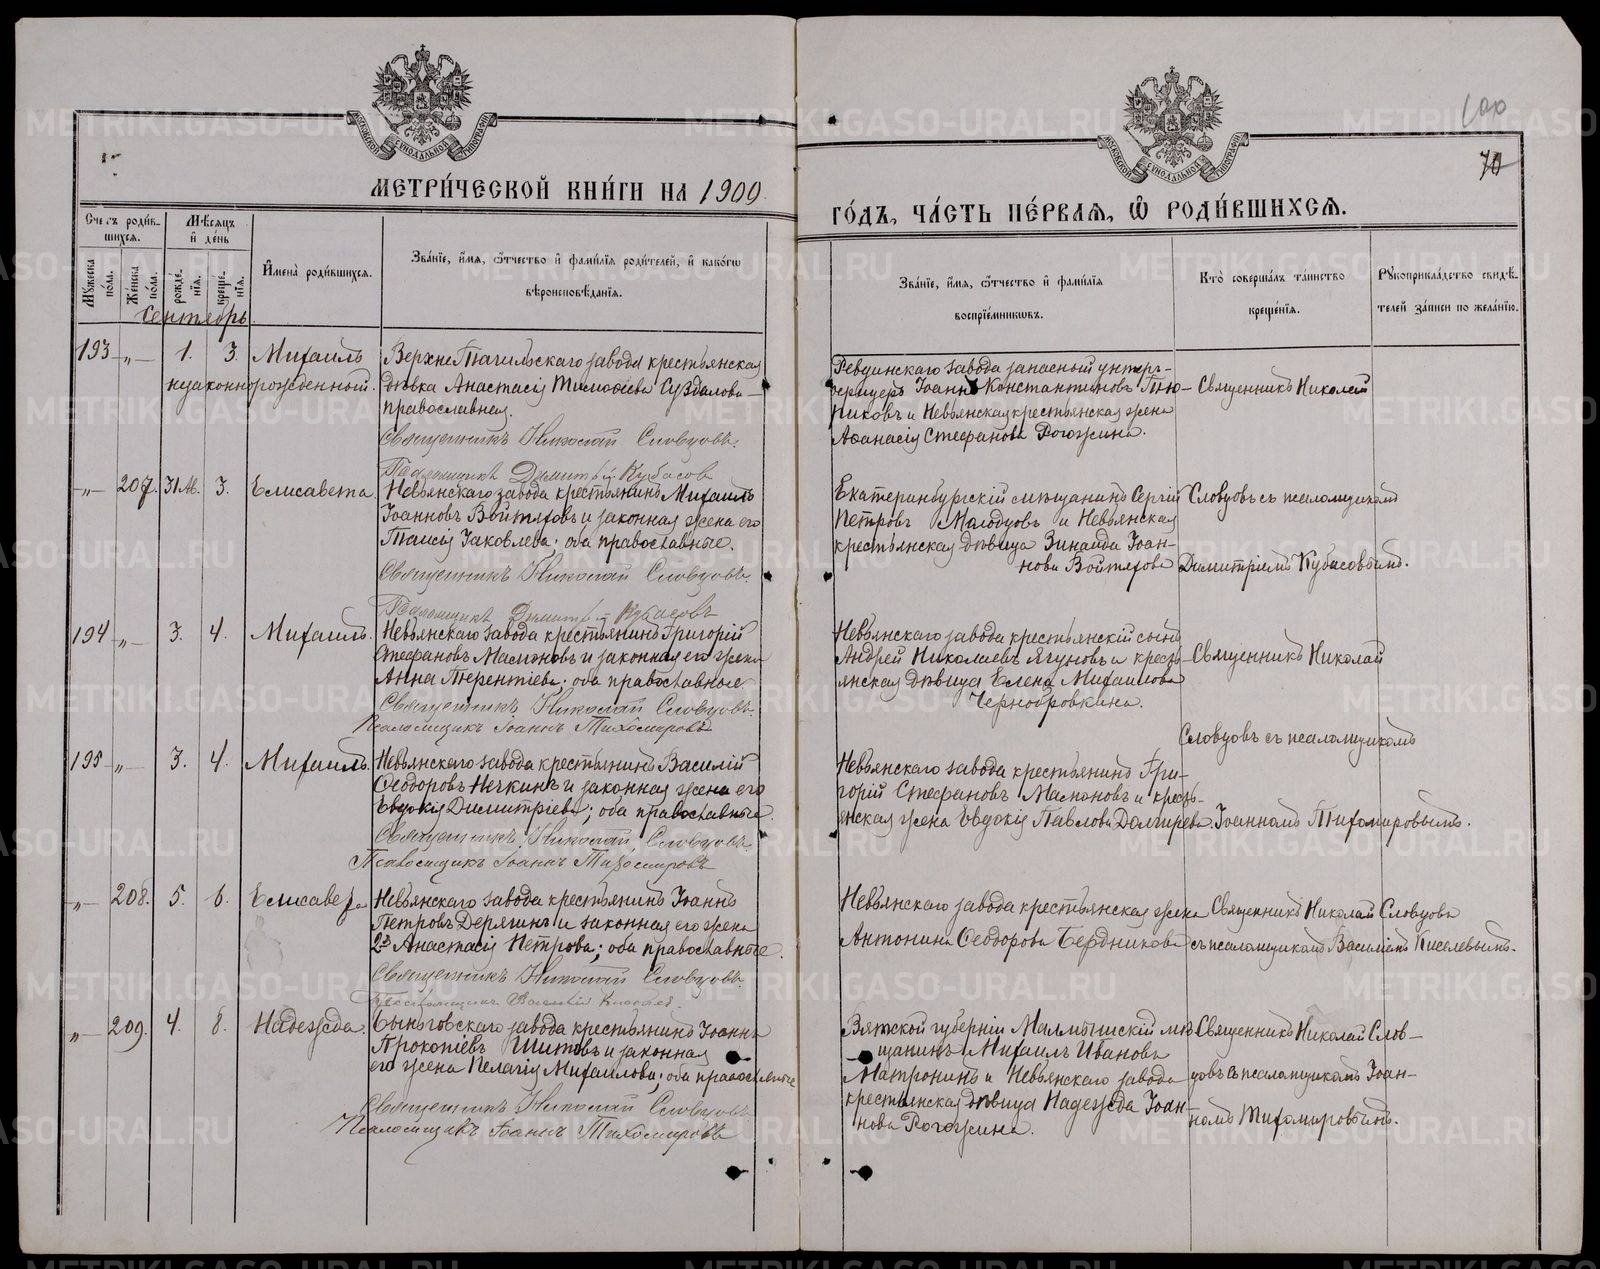 МЕТРИ́ЧЕСКОЙ КНИ́ГИ НА 1909
ГО́ДЪ, ЧА́СТЬ ПЕ́РВАѦ, Ѡ҆ РОДИ́ВШИХСѦ.
100
70
МОСКОВСКОЙ СѴНОДАЛЬНОЙ ТИПОГРАФІИ
МОСКОВСКОЙ СѴНОДАЛЬНОЙ ТИПОГРАФІИ
Счетъ роди́вшихсѧ.
Мѣ́сѧцъ и҆ де́нь
Мꙋ́жеска по́ла.
Же́нска по́ла.
рожде́нїѧ.
креще́нїѧ.
И҆мена̀ роди́вшихсѧ.
Зва́нїе, и҆́мѧ, ѻ҆́тчество и҆ фами́лїѧ роди́телей, и҆ како́гѡ
вѣроисповѣ́данїѧ.
Зва́нїе, и҆́мѧ, ѻ҆́тчество и҆ фами́лїѧ
воспрїе́мникѡвъ.
Кто̀ соверша́лъ та́инство
креще́нїѧ.
Рꙋкоприкла́дство свидѣ́телей за́писи по жела́нїю.
Сентябрь
193 -„- 1. 3. Михаилъ
незаконнорожденный.
Верхне Тагильскаго завода крестьянская
дѣвка Анастасія Тимофеева Суздалова –
православная.
Священникъ Николай Словцовъ.
Псаломщикъ Димитрій Кубасовъ
Ревдинскаго завода запасный унтеръ-
офицеръ Іоаннъ Константиновъ Тю-
никовъ и Невьянская крестьянская жена
Аѳанасія Стефанова Рогожина.
Священникъ Николай
-„- 207. 31 Ав. 3. Елисавета.
Невьянскаго завода крестьянинъ Михаилъ
Іоанновъ Войтяховъ и законная жена его
Таисія Іаковлева. оба православные.
Священникъ Николай Словцовъ.
Псаломщикъ Димитрій Кубасовъ
Екатеринбургскій мѣщанинъ Сергій
Петровъ Молодцовъ и Невьянская
крестьянская дѣвица Зинаида Іоан-
нова Войтяхова
Словцовъ съ псаломщикомъ
Димитріемъ Кубасовымъ.
194 -„- 3. 4. Михаилъ.
Невьянскаго завода крестьянинъ Григорій
Стефановъ Масмоновъ и законная его жена
Анна Терентіева. оба православные
Священникъ Николай Словцовъ.
Псаломщикъ Іоаннъ Тихомировъ
Невьянскаго завода крестьянскій сынъ
Андрей Николаевъ Ягуновъ и кресть-
янская дѣвица Елена Михаилова
Чернобровкина.
Священникъ Николай
Словцовъ съ псаломщикомъ
195 -„- 3. 4. Михаилъ.
Невьянскаго завода крестьянинъ Василій
Ѳеодоровъ Нечкинъ и законная жена его
Евдокія Димитріева; оба православные.
Священникъ Николай Словцовъ
Псаломщикъ Іоаннъ Тихомировъ
Невьянскаго завода крестьянинъ Гри-
горій Стефановъ Масмоновъ и кресть-
янская жена Евдокія Павлова Домирева.
Іоанномъ Тихомировымъ.
-„- 208. 5. 6. Елисавета
Невьянскаго завода крестьянинъ Іоаннъ
Петровъ Дерягинъ и законная его жена
Анастасія Петрова; оба православные.
Священникъ Николай Словцовъ.
Псаломщикъ Василій Киселев.
Невьянскаго завода крестьянская жена
Антонина Ѳеодорова Бердникова
Священникъ Николай Словцовъ
съ псаломщикомъ Василіемъ Киселевымъ.
-„- 209. 4. 8. Надежда.
Быньговскаго завода крестьянинъ Іоаннъ
Прокопіевъ Шитовъ и законная
его жена Пелагія Михаилова; оба православные
Священникъ Николай Словцовъ
Псаломщикъ Іоаннъ Тихомировъ
Вятской губерніи Малмыжскій мѣ-
щанинъ Михаилъ Ивановъ
Матронинъ и Невьянскаго завода
крестьянская дѣвица Надежда Іоан-
нова Рогожина.
Священникъ Николай Слов-
цовъ съ псаломщикомъ Іоан-
номъ Тихомировымъ.
METRIKI.GASO-URAL.RU